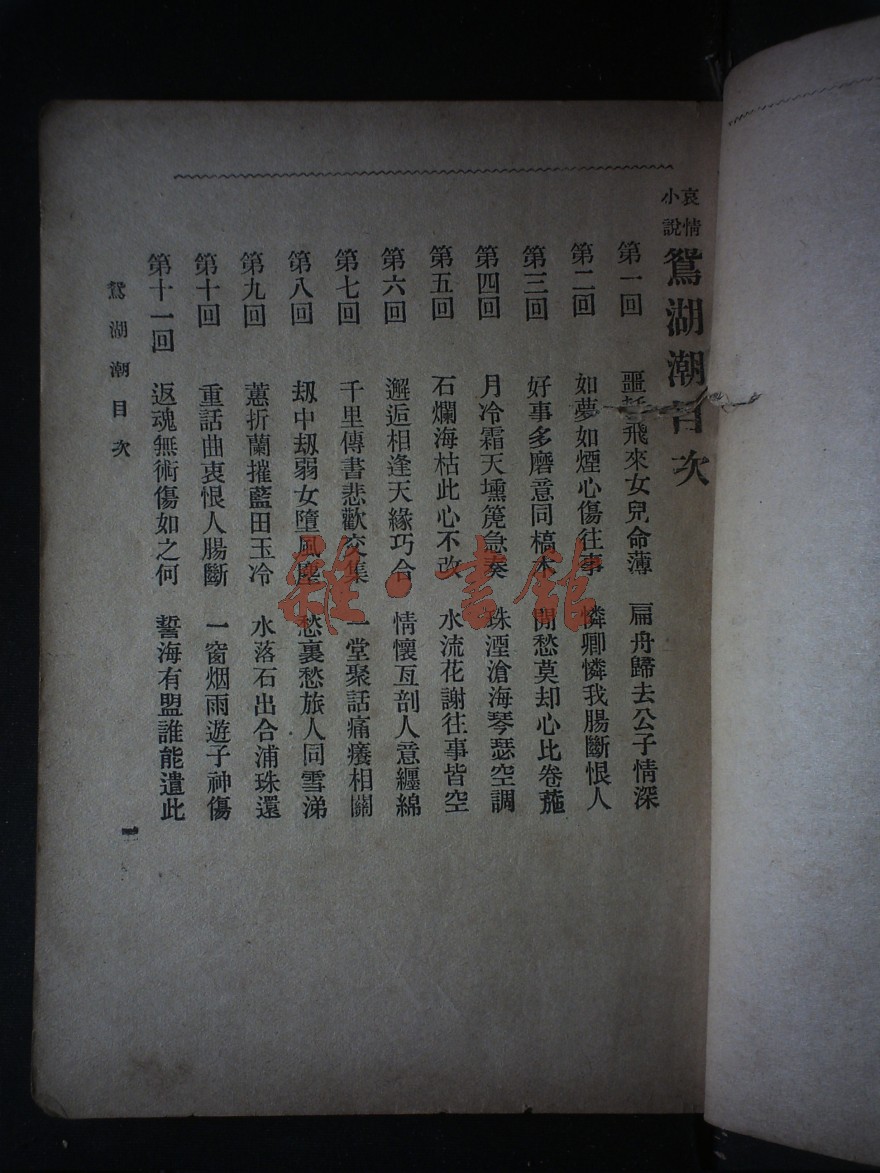 哀情小說
鴛湖潮目次
第一回 噩耗飛來女兒命薄 扁舟歸去公子情深
第二回 如夢如煙心傷往事 憐卿憐我腸斷恨人
第三回 好事多磨意同槁木 閒愁莫却心比卷葹
第四回 月冷霜天壎箎急奏 珠湮滄海琴瑟空調
第五回 石爛海枯此心不改 水流花謝往事皆空
第六回 邂逅相逢天緣巧合 情懷亙剖人意纏綿
第七回 千里傳書悲歡交集 一堂聚話痛癢相關
第八回 刼中刼弱女墮風塵 愁裏愁旅人同雪涕
第九回 蕙折蘭摧藍田玉冷 水落石出合浦珠還
第十回 重話曲衷恨人腸斷 一窗烟雨遊子神傷
第十一回 返魂無術傷如之何 誓海有盟誰能遣此
鴛湖潮目次
一
雜·書館